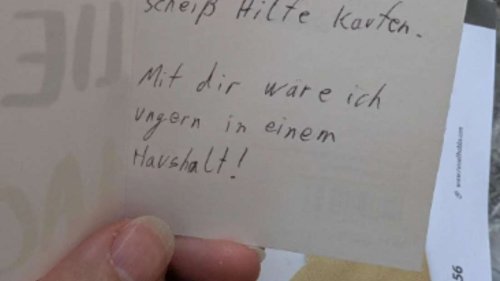 scheiß Hilfe kaufen.
Mit dir wäre ich
ungern in einem
Haushalt!
56